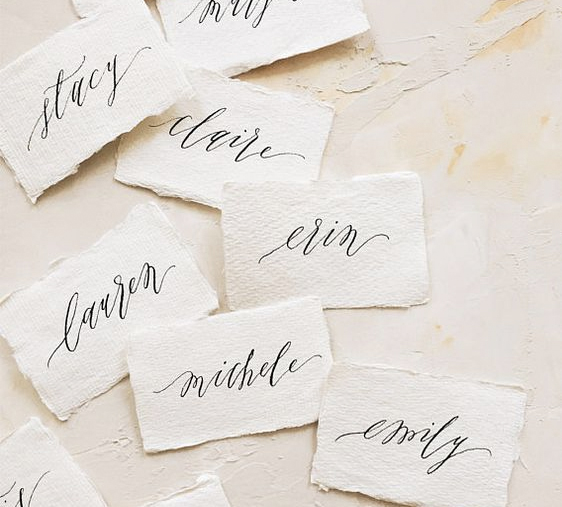 stacy
claire
erin
lauren
michele
emily